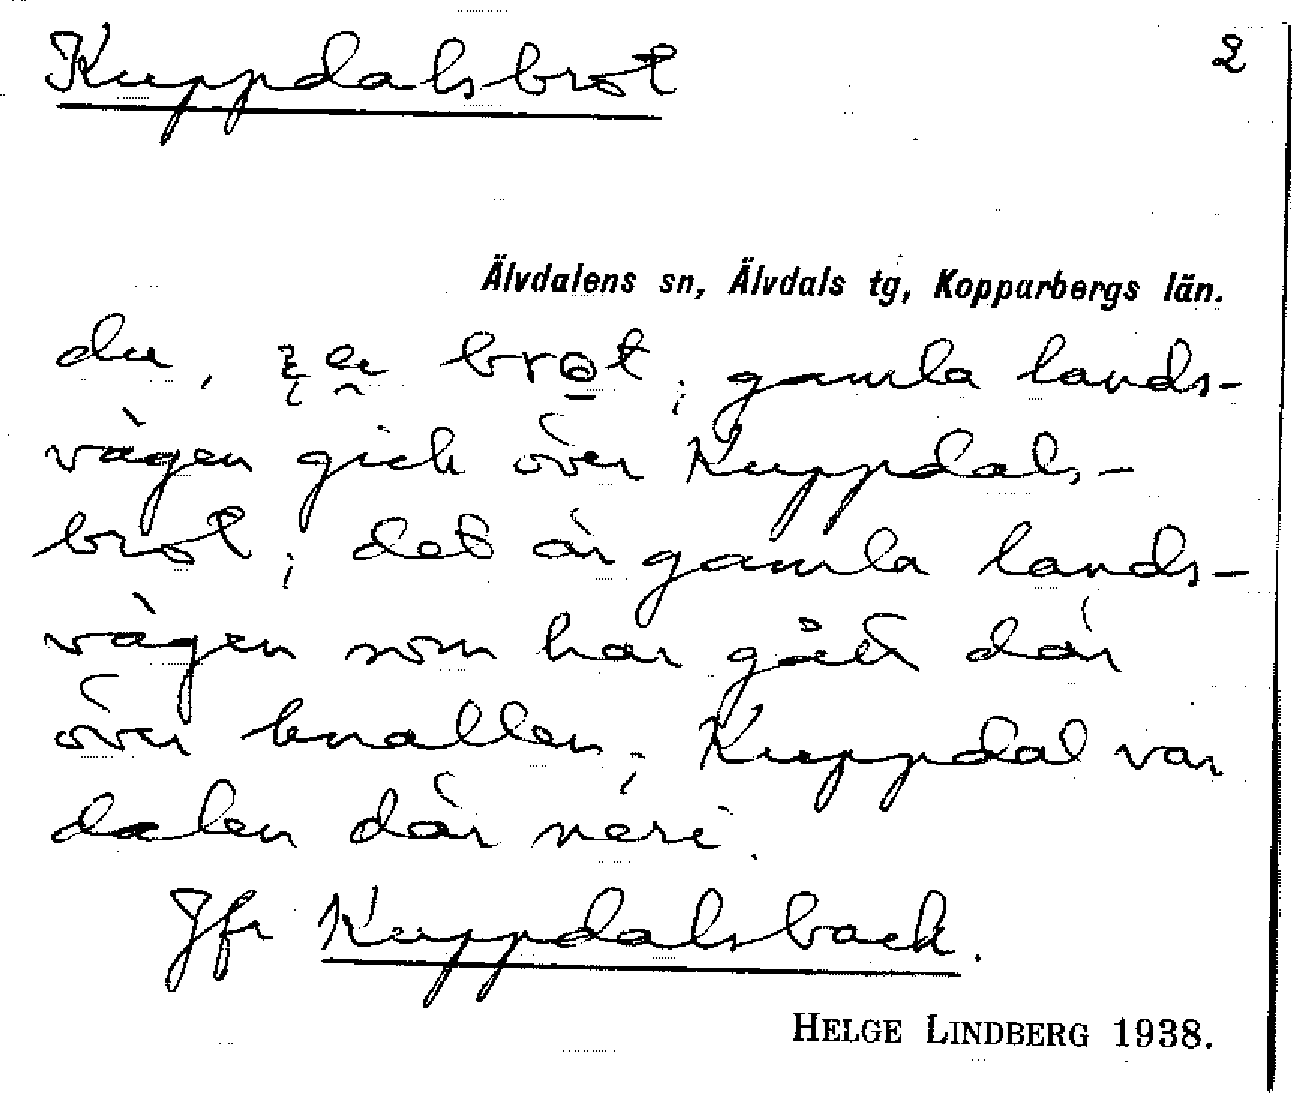 Kuppdalsbrot 2
Älvdalens sn, Älvdals tg, Kopparbergs län.
du, brot; gamla lands-
vägen gick över Kuppdals-
brot; det är gamla lands-
vägen som har gått där
över knallen; Kuppdal var
dalen där neri.
Jfr Kuppdalsback.
HELGE LINDBERG 1938.